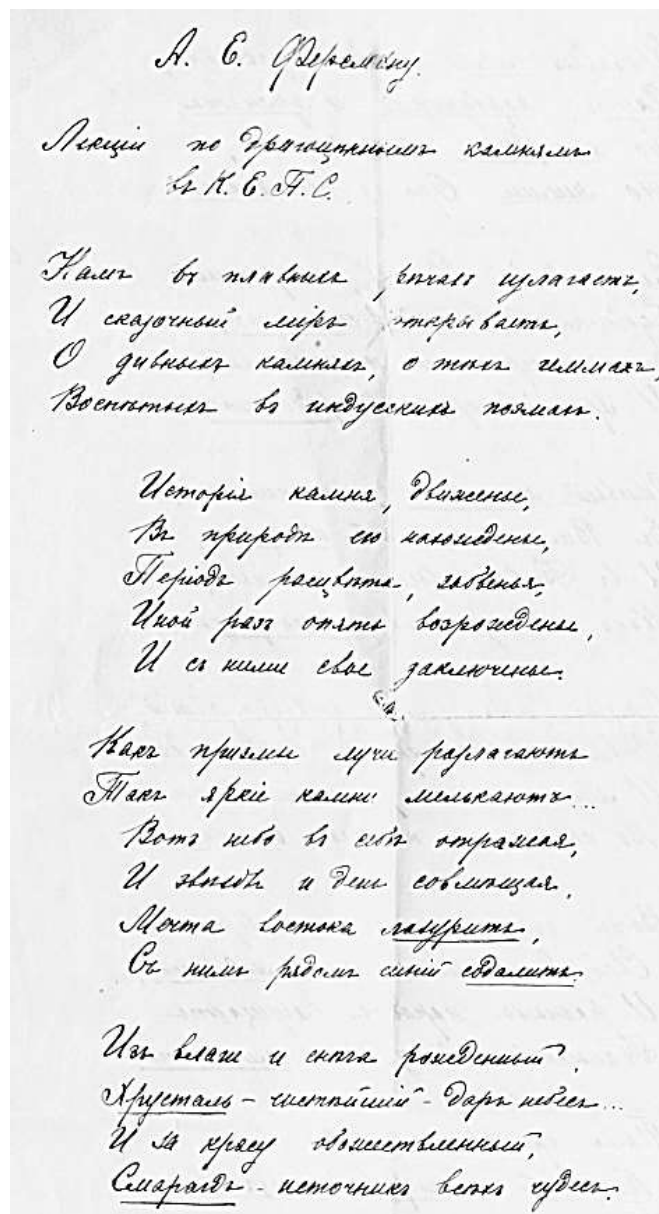 А. Е. Ферсману.
Лекціи по драгоцѣннымъ камнямъ
въ К. Е. П. С.
Намъ въ плавныхъ рѣчахъ излагаетъ,
И сказочный міръ открываетъ,
О дивныхъ камняхъ, о тѣхъ геммахъ,
Воспѣтыхъ въ индусскихъ поэмахъ.
Исторія камня, движенье,
Въ природѣ его нахожденье,
Періодъ расцвѣта, забвенья,
Иной разъ опять возрожденье,
И съ ними свое заключенье.
Какъ призмы лучи разлагаютъ
Такъ яркіе камни мелькаютъ...
Вотъ небо въ себѣ отражая,
И звѣзды и день совмѣщая,
Мечта востока лазуритъ,
Съ нимъ рядомъ синій содалитъ.
Изъ влаги и снѣга рожденный,
Хрусталь - чистѣйшій - даръ небесъ...
И за красу обожествленный,
Смарагдъ - источникъ всѣхъ чудесъ.